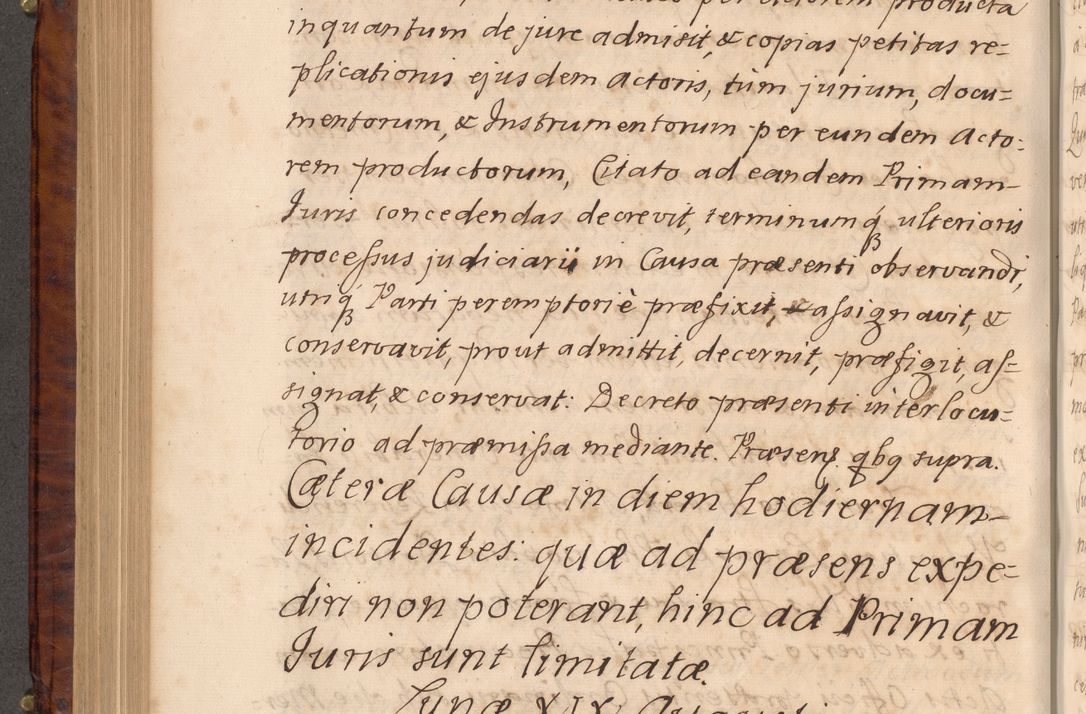 per Actorem producta
inquantum de jure admisit, & copias petitas re=
plicationis ejusdem Actoris, tùm jurium, docu=
mentorum, & Instrumentorum per eundem Acto=
rem productorum, Citato ad eandem Primam
Juris concedendas decrevit, terminumq́ꝫ ulterioris
processus judiciarii in Causa præsenti observandi,
utriq́ꝫ Parti peremptoriè præfixit, assignavit, &
conservavit, prout admittit, decernit, præfigit, as=
signat, & conservat: Decreto præsenti interlocu=
torio ad præmissa mediante. Præsens. qbq supra.
Cæteræ Causæ in diem hodiernam
incidentes: quæ ad præsens expe=
diri non poterant, hinc ad Primam
Juris sunt limitatæ.
Lunæ XIX Augusti